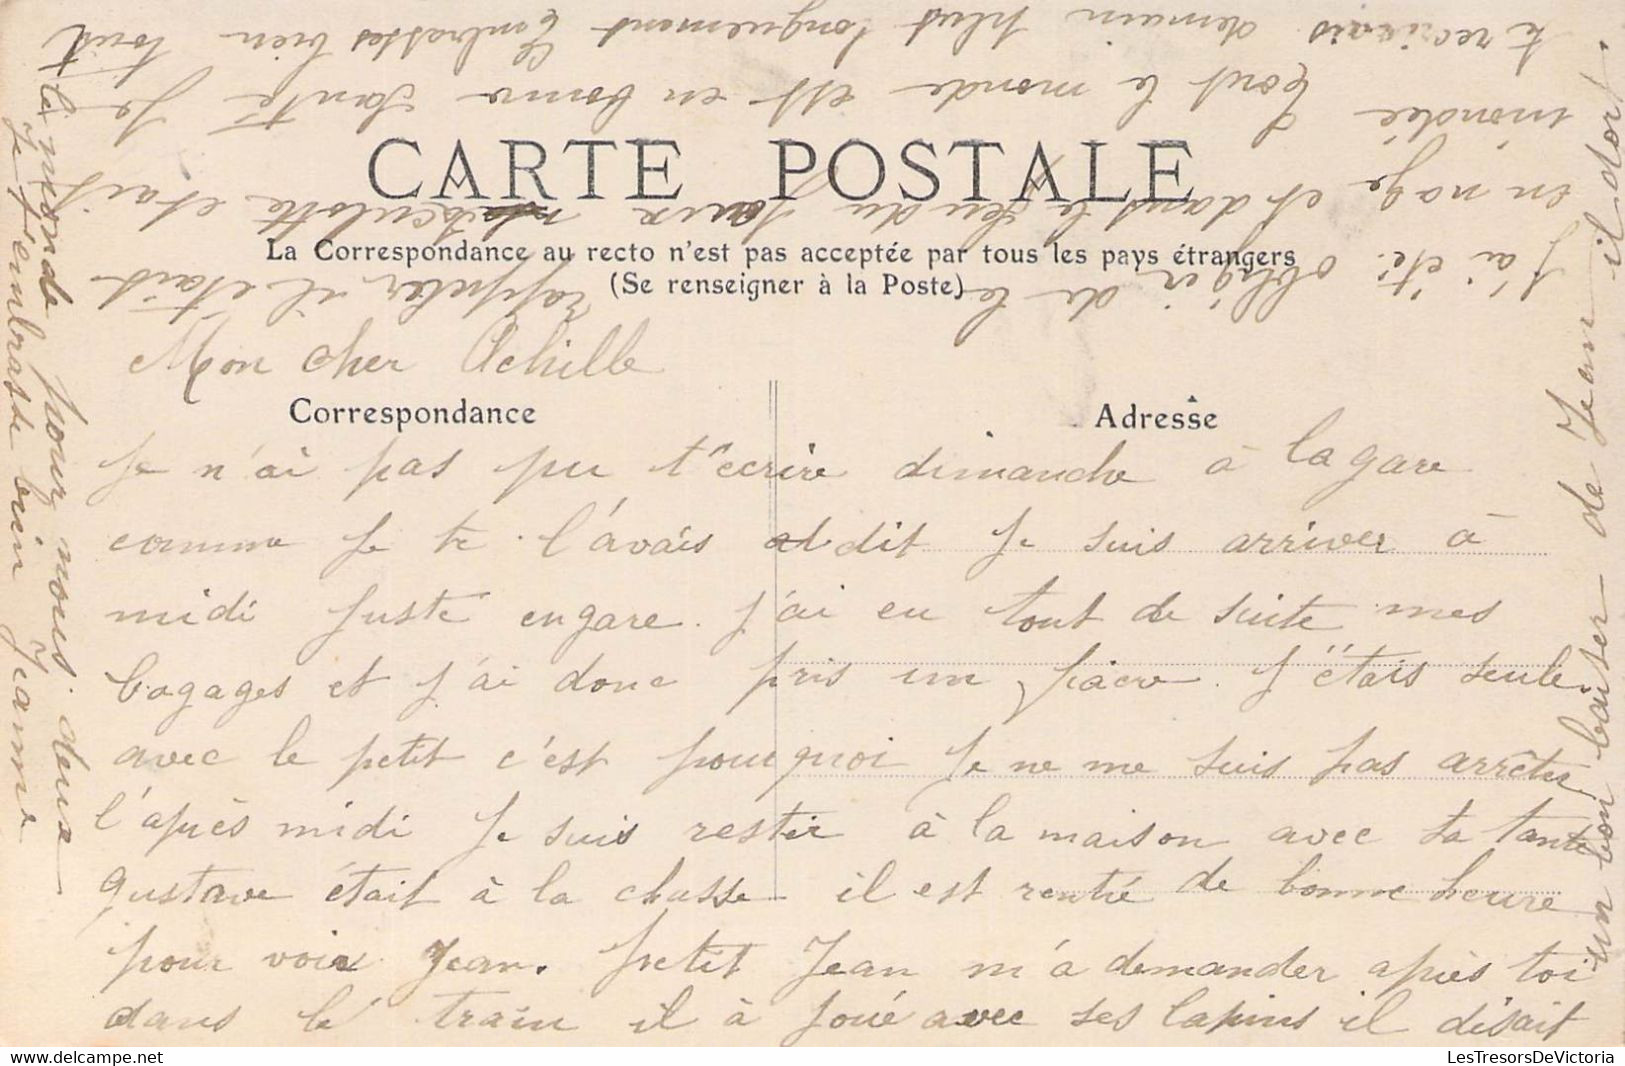 CARTE POSTALE
La Correspondance au recto n'est pas acceptée par tous les pays étrangers
(Se renseigner à la Poste)
Mon cher Achille
Correspondance
Adresse
Je n'ai pas pu t'ecrire dimanche à la gare
comme Je te l'avais dit Je suis arriver à
midi Juste en gare. J'ai eu tout de suite mes
bagages et J'ai donc pris un fiacre. J'étais seule
avec le petit c'est pourquoi Je ne me suis pas arrêter
l'après midi Je suis rester à la maison avec ta tante
gustave était à la chasse il est rentré de bonne heure
pour voir Jean. petit Jean m'a demander après toi
dans le train il à Joué avec ses lapins il disait
J'ai été obliger de le rappeler il était
en nage et dans le feu du sa culotte etait
inondée tout le monde est en bonne santé Je
t'ecrirais demain plus longuement Embrasses bien tout
le monde pour nous deux
Je t'embrasse bien Jeanne
un bon baiser de Jean il dort.
LesTresorsDeVictoria